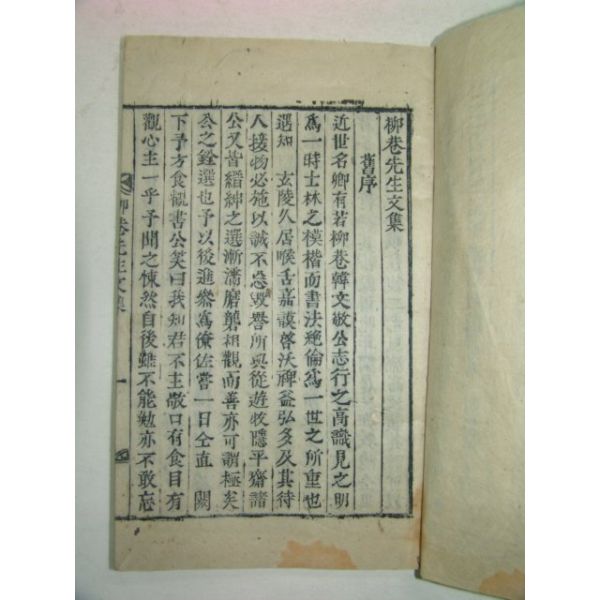 柳巷先生文集
舊序
近世名卿有若柳巷韓文敬公志行之高識見之明
爲一時士林之模楷而書法絶倫爲一世之所重也
遇知 玄陵久居喉舌嘉謨啓沃裨益弘多及其待
人接物必施以誠不忌毀譽所與從遊牧隱平齋諸
公又皆縉紳之選漸濡磨礱相觀而善亦可謂極矣
公之銓選也予以後進忝爲僚佐嘗一日仝直 闕
下予方食觀書公笑曰我知君不主敬口有食目有
觀心主一乎予聞之悚然自後雖不能勉亦不敢忘
柳巷先生文集 一